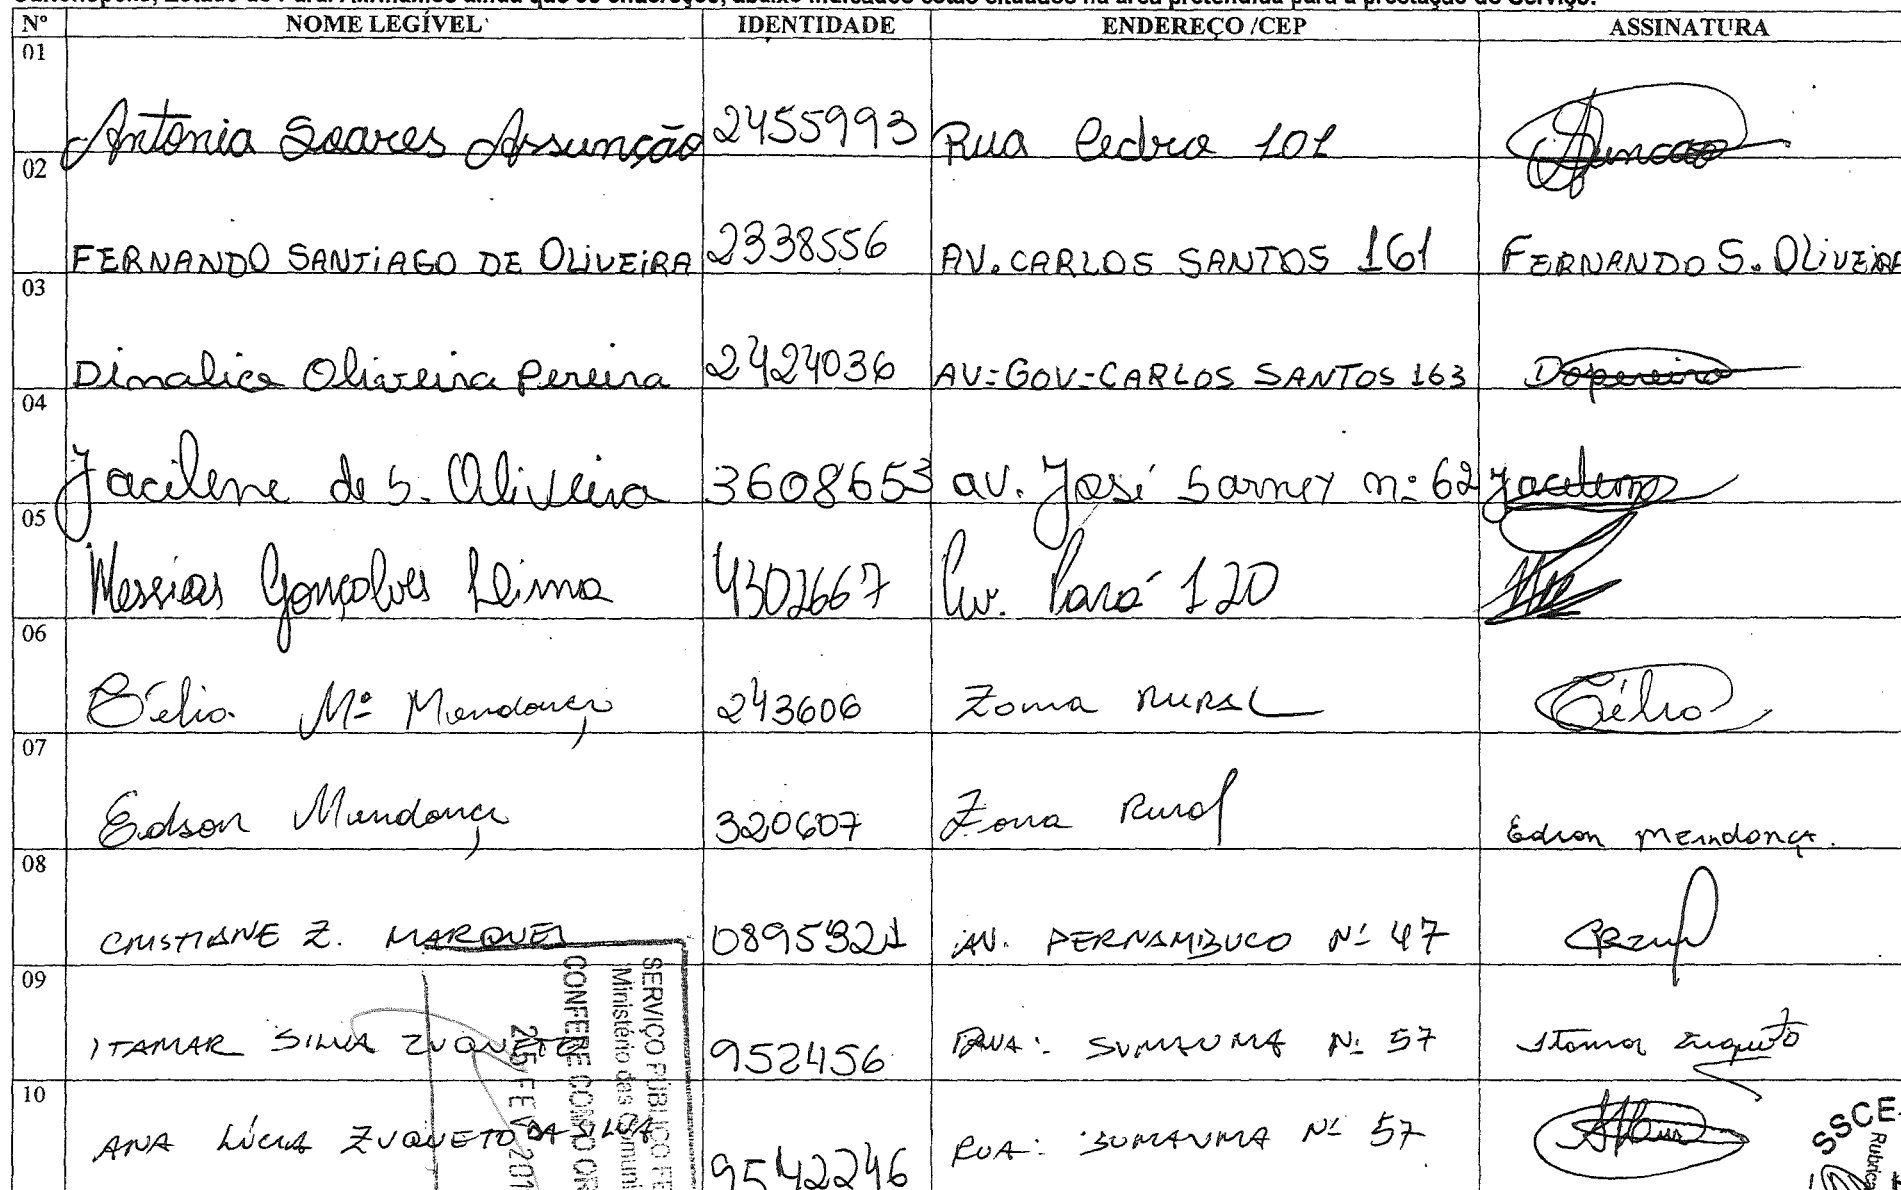 Nº NOME LEGÍVEL IDENTIDADE ENDEREÇO /CEP ASSINATURA
01 Antonia Soares Assunção 2455993 Rua Cedro 101
02 FERNANDO SANTIAGO DE OLIVEIRA 2338556 AV. CARLOS SANTOS 161 FERNANDO S. OLIVEIRA
03 Dinalice Oliveira Pereira 2424036 AV=GOV=CARLOS SANTOS 163 Dopereira
04 Jacilene de S. Oliveira 3608653 av. José Sarney nº 62 Jacilene
05 Messias Gonçalves Lima 4302667 Av. Pará 120
06 Célia Mª Mendonça 243606 Zona RURAL Célia
07 Edson Mendonça 320607 Zona Rural Edson Mendonça.
08 CRISTIANE Z. MARQUES 0895921 AV. PERNAMBUCO Nº 47
09 ITAMAR SILVA ZUQUETO 952456 RUA: SUMAUMA Nº 57 Itamar Zuqueto
10 ANA LÚCIA ZUQUETO DA SILVA 9542246 RUA: SUMAUMA Nº 57
SERVIÇO PÚBLICO FE
Ministério das Comuni
CONFERE COM O OR
25 FEV 201
SSCE
Rubrica